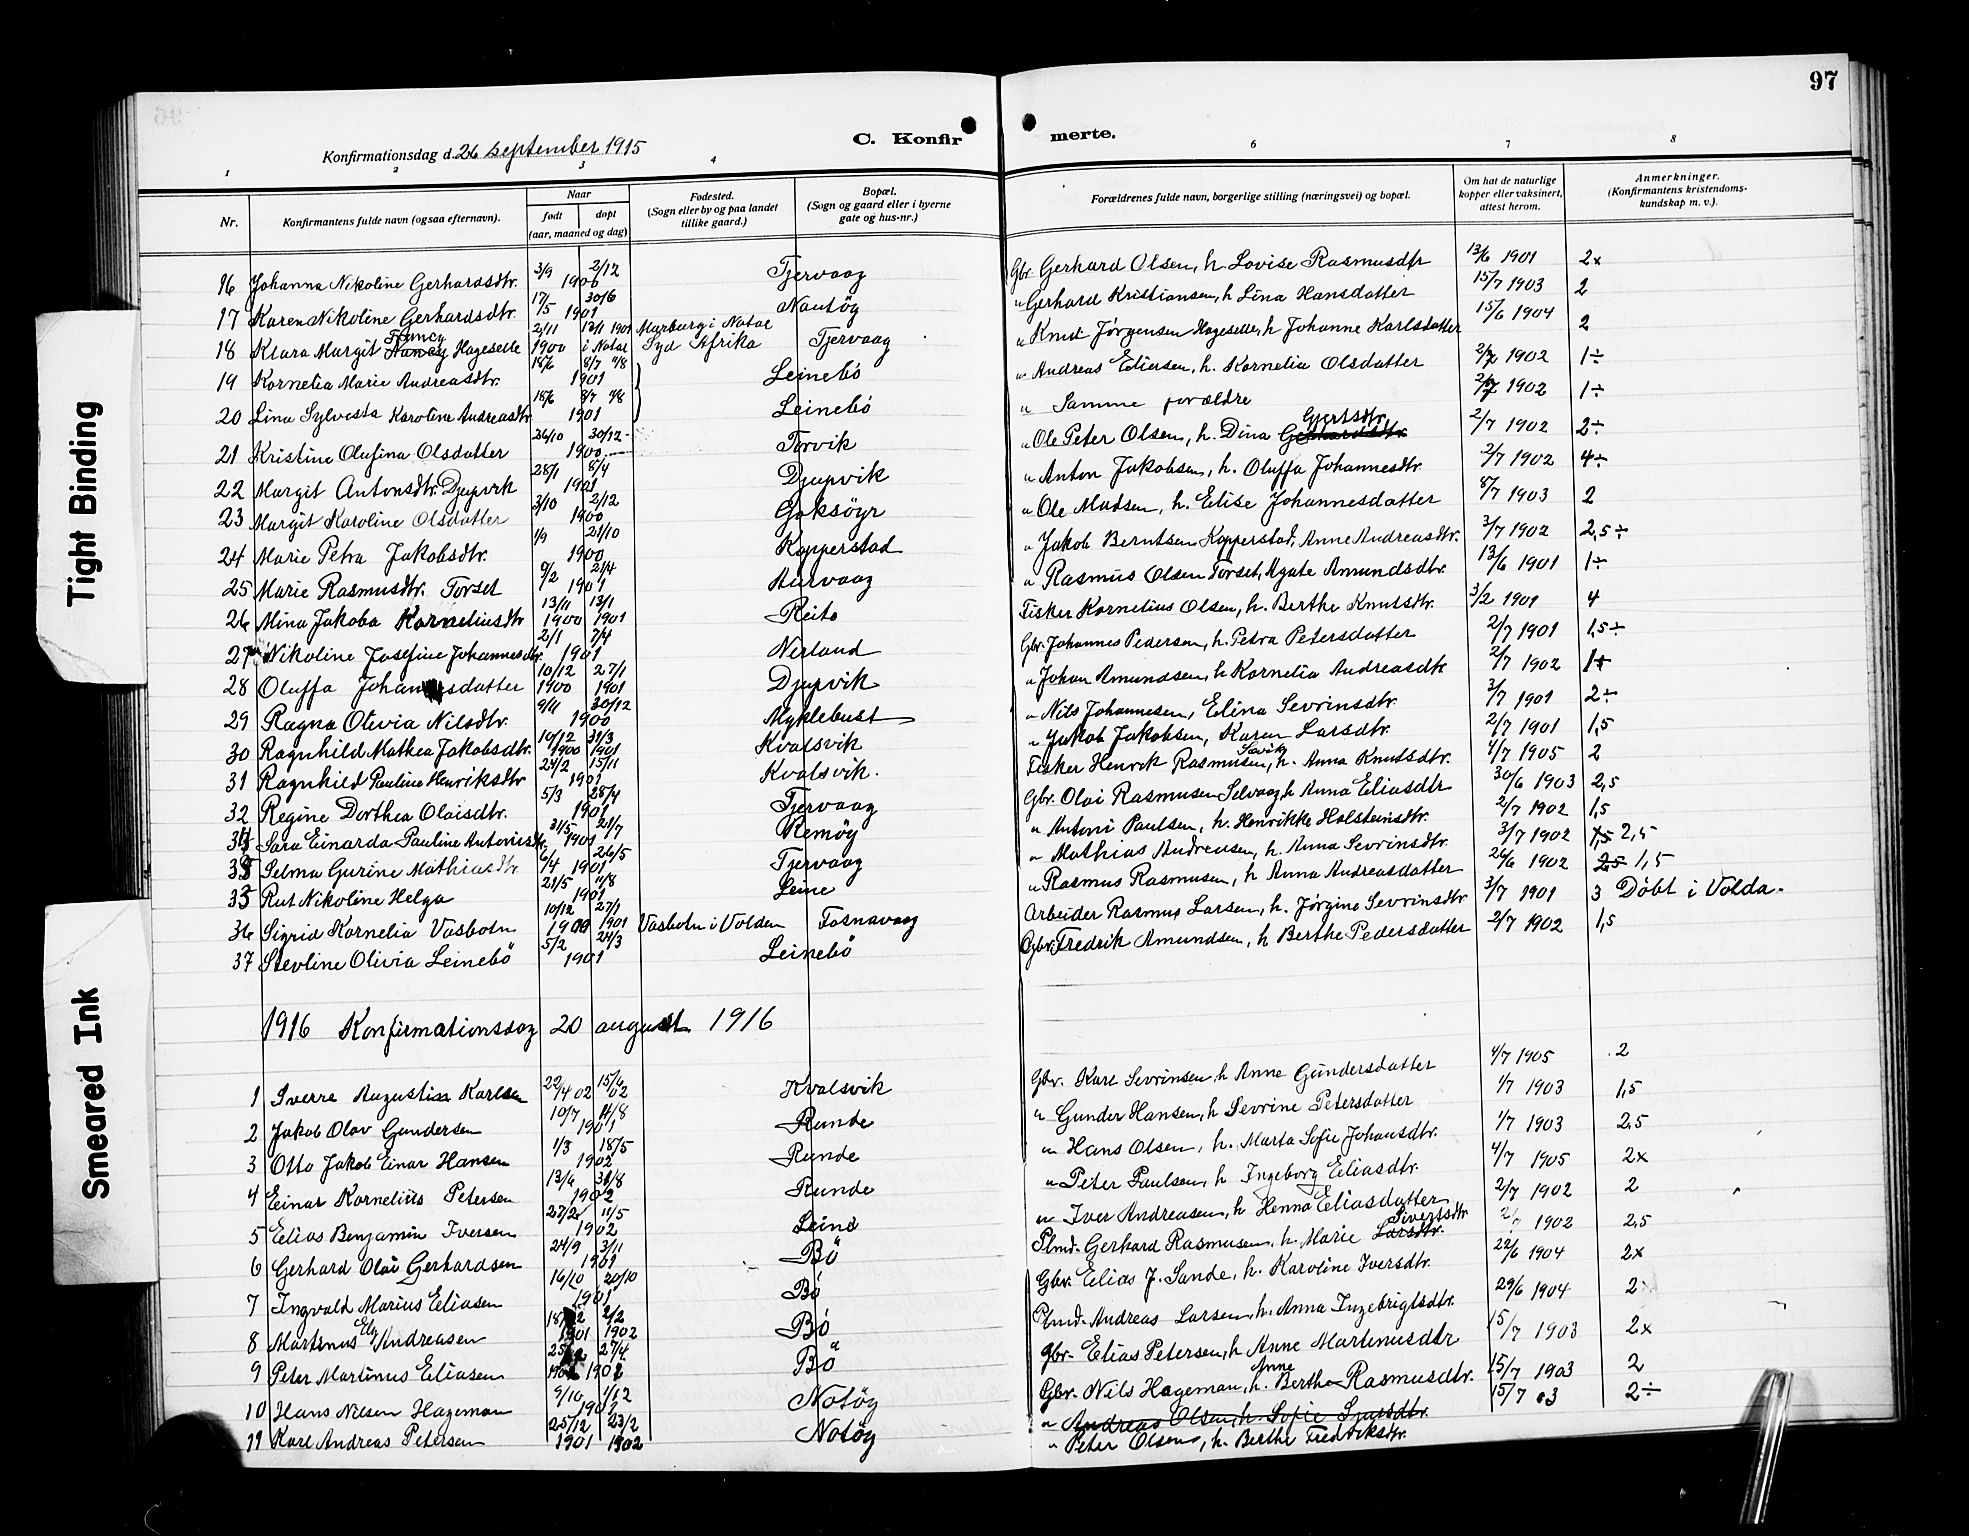 97
Konfirmationsdag d. 26 september 1915
C. Konfir merte.
1 2 3 4 6 7 8
Nr. Konfirmantens fulde navn (ogsaa efternavn). Naar født døpt (aar, maaned og dag) Fødested. (Sogn eller by og paa landet tillike gaard.) Bopæl. (Sogn og gaard eller i byerne gate og hus-nr.) Forældrenes fulde navn, borgerlige stilling (næringsvei) og bopæl. Om hat de naturlige kopper eller vaksinert, attest herom. Anmerkninger. (Konfirmantens kristendoms-kundskap m. v.).
16 Johanna Nikoline Gerhardsdtr. 3/9 2/12 1900 Tjervaag Gbr. Gerhard Olsen, h. Lovise Rasmusdtr 13/6 1901 2x
17 Karen Nikoline Gerhardsdtr. 17/5 30/6 1901 Nautöy " Gerhard Kristiansen, h. Lina Hansdatter 15/7 1903 2
18 Klara Margit Nancy Hageselle 21/11 1900 13/1 1901 i Natal Marburg i Natal Syd Afrika Tjervaag " Knut Jørgensen Hageselle, h. Johanne Karlsdatter 15/6 1904 2
19 Kornelia Marie Andreasdtr. 18/6 8/7 4/8 1901 Leinebö " Andreas Eliasen, h. Kornelia Olsdatter 2/7 1902 1÷
20 Lina Sylvesta Karoline Andreasdtr 18/6 8/7 4/8 1901 Leinebö " Samme forældre 2/7 1902 1÷
21 Kristine Olufina Olsdatter 26/10 30/12 1900 Torvik " Ole Peter Olsen, h. Dina Gjertsdtr. 2/7 1902 2÷
22 Margit Antonsdtr. Djupvik 28/1 8/4 1901 Djupvik " Anton Jakobsen, h. Oluffa Johannesdtr. 3/7 1902 4÷
23 Margit Karoline Olsdatter 3/10 2/12 1900 Goksöyr " Ole Madsen, h. Elise Johannesdatter 8/7 1903 2
24 Marie Petra Jakobsdtr. 1/9 21/10 1900 Kopperstad " Jakob Berntsen Kopperstad, Anne Andreasdtr. 3/7 1902 2,5÷
25 Marie Rasmusdtr. Torset 9/2 21/4 1901 Aurvaag " Rasmus Olsen Torset, Agate Amundsdtr. 13/6 1901 1÷
26 Mina Jakoba Korneliusdtr 13/11 1900 13/1 1901 Reite Fisker Kornelius Olsen, h. Berthe Knutsdtr. 3/2 1901 4
27 Nikoline Josefine Johannesdtr. 2/1 7/4 1901 Nerland Gbr. Johannes Pedersen, h. Petra Petersdatter 2/7 1901 1,5÷
28 Oluffa Johannesdatter 10/12 1900 27/1 1901 Djupvik " Johan Amundsen, h. Kornelia Andreasdtr 2/7 1902 1+
29 Ragna Otivia Nilsdtr. 9/11 30/12 1900 Myklebust " Nils Johannesen, Elina Sevrinsdtr. 3/7 1901 2÷
30 Ragnhild Mathea Jakobsdtr. 10/12 1900 31/3 1901 Kvalsvik " Jakob Jakobsen, Karen Larsdtr. 2/7 1901 1,5
31 Ragnhild Pauline Henriksdtr 24/2 15/11 1901 Kvalsvik. Fisker Henrik Rasmusen Sævik, h. Anna Knutsdtr. 4/7 1905 2
32 Regine Dorthea Olaisdtr. 5/3 28/4 1901 Tjervaag Gbr. Olai Rasmusen Selvaag, h. Anna Eliasdtr 30/6 1903 2,5
Sara Einarda Pauline Antonisdtr. 31/5 21/7 1901 Remöy " Antoni Paulsen, h. Henrikke Holsteinsdtr. 2/7 1902 1,5
Selma Gurine Mathiasdtr 6/4 26/5 1901 Tjervaag " Mathias Andreasen, h. Anna Sevrinsdtr. 3/7 1902 1,5 2,5
35 Rut Nikoline Helga 21/5 11/8 1901 Leine " Rasmus Rasmusen, h. Anna Andreasdatter 26/6 1902 2,5 1,5
36 Sigrid Kornelia Vasbotn 10/12 1900 27/1 1901 Vasbotn i Volden Fosnavaag Arbeider Rasmus Larsen, h. Jørgine Sevrinsdtr 3/7 1901 3 Döbt i Volda.
37 Stevline Olivia Leinebö 5/2 24/3 1901 Leinebö Gbr. Fredrik Amundsen, h. Berthe Pedersdatter 2/7 1902 1,5
1916 Konfirmationsdag 20 august 1916
1 Sverre Augustin Karlsen 22/4 02 15/6 02 Kvalsvik Gbr. Karl Sevrinsen, h. Anne Gundersdatter 4/7 1905 2
2 Jakob Olav Gundersen 10/7 11/8 1901 Runde " Gunder Hansen, h. Sevrine Petersdatter 1/7 1903 1,5
3 Otto Jakob Einar Hansen 1/3 18/5 1902 Runde " Hans Olsen, h. Marta Sofie Johansdtr. 1/7 1903 2,5
4 Einar Kornelius Petersen 13/6 31/8 1902 Runde " Peter Paulsen, h. Ingeborg Eliasdtr. 4/7 1905 2x
5 Elias Benjamin Iversen 27/2 11/5 1902 Leine " Iver Andreasen, h. Henna Eliasdatter 2/7 1902 2
6 Gerhard Olai Gerhardsen 24/9 3/11 1901 Bö Plmd. Gerhard Rasmusen, h. Marie Larsdtr. Sivertsdtr 2/7 1902 2,5
7 Ingvald Marius Eliasen 16/10 20/10 1901 Bö Gbr. Elias J. Sande, h. Karoline Iversdtr. 22/6 1904 2x
8 Martinus Elg Andreasen 1901 2/2 1902 Bö Plmd. Andreas Larsen, h. Anna Ingebrigtsdtr. 29/6 1904 2
9 Peter Martinus Eliasen 27/4 1902 Bö Gbr. Elias Petersen, h. Anne Martinusdtr 15/7 1903 2x
10 Hans Nilsen Hageman 9/10 1/12 1901 Notöy Gbr. Nils Hageman, h. Anne Berthe Rasmusdtr. 15/7 1903 2
11 Karl Andreas Petersen 25/12 1901 23/2 1902 Notöy " Andreas Olsen, h. Sofie " Peter Olsen, h. Berthe Fredriksdtr. 15/7 03 2÷
Tight Binding
Smeared Ink